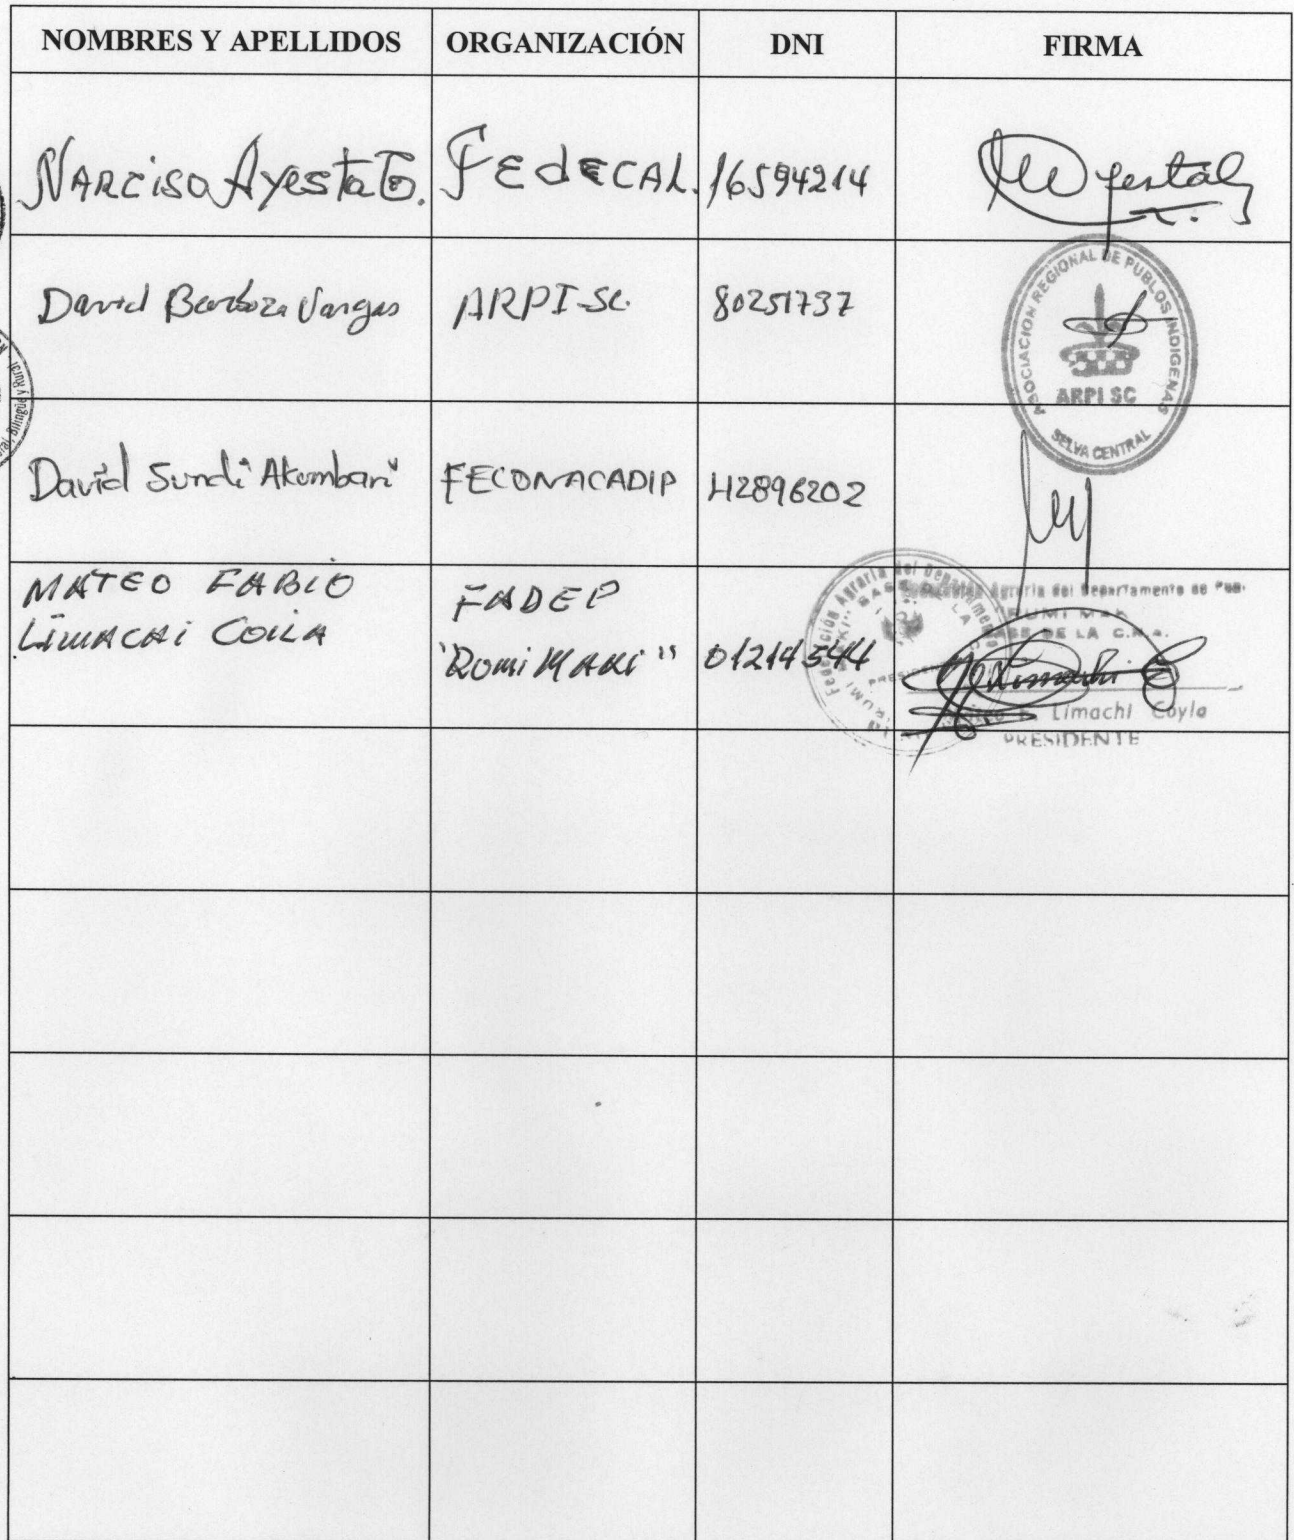 NOMBRES Y APELLIDOS ORGANIZACIÓN DNI FIRMA
NARCISO Ayesta T. FEdECAL. 16594214
David Barboza Vargas ARPI-SC. 80251737
ASOCIACION REGIONAL DE PUBLOS INDIGENAS
ARPI SC
SELVA CENTRAL
David Sundi Akumbari FECONACADIP 42896202
MATEO FABIO
LIMACHI COILA
FADEP
"RUMI MAKI" 01214544
Agraria del Departamento de
RUMI MAKI
BASE DE LA C.N.A.
Limachi Coyla
PRESIDENTE
Bilingüe y Rural